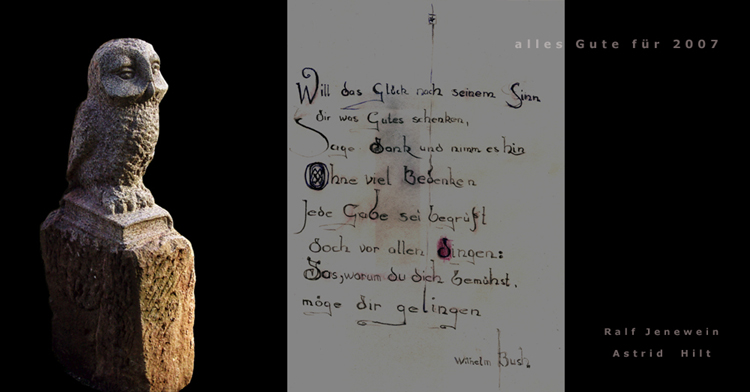 alles Gute für 2007
Will das Glück nach seinem Sinn
dir was Gutes schenken,
Sage dank und nimm es hin
Ohne viel Bedenken
Jede Gabe sei begrüßt
doch vor allen dingen:
Das, warum du dich bemühst,
möge dir gelingen
Wilhelm Busch
Ralf Jenewein
Astrid Hilt